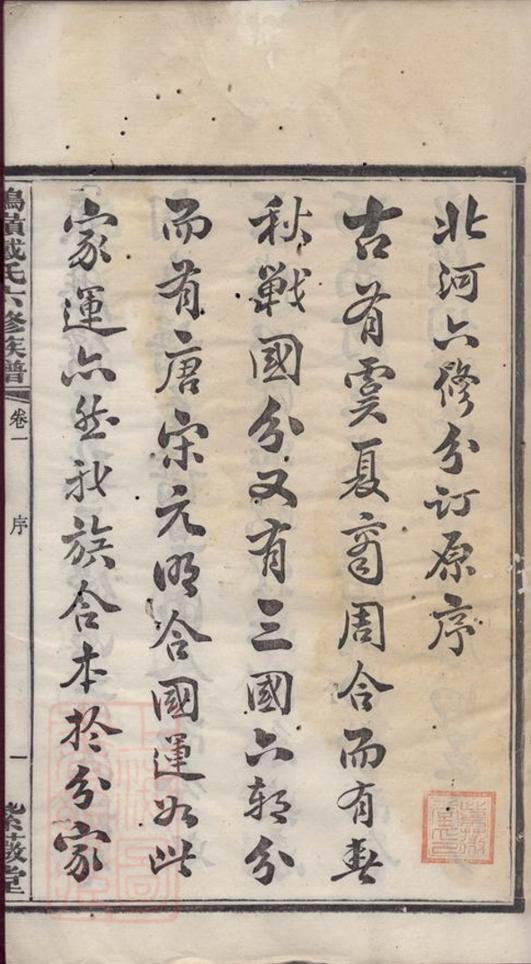 北河六修分訂原序
古有虞夏商周合而有春
秋戰國分又有三國六朝分
而有唐宋元明合國運如此
家運亦然我族合本於分家
戴氏六修族譜
卷一
序
一
紫薇堂